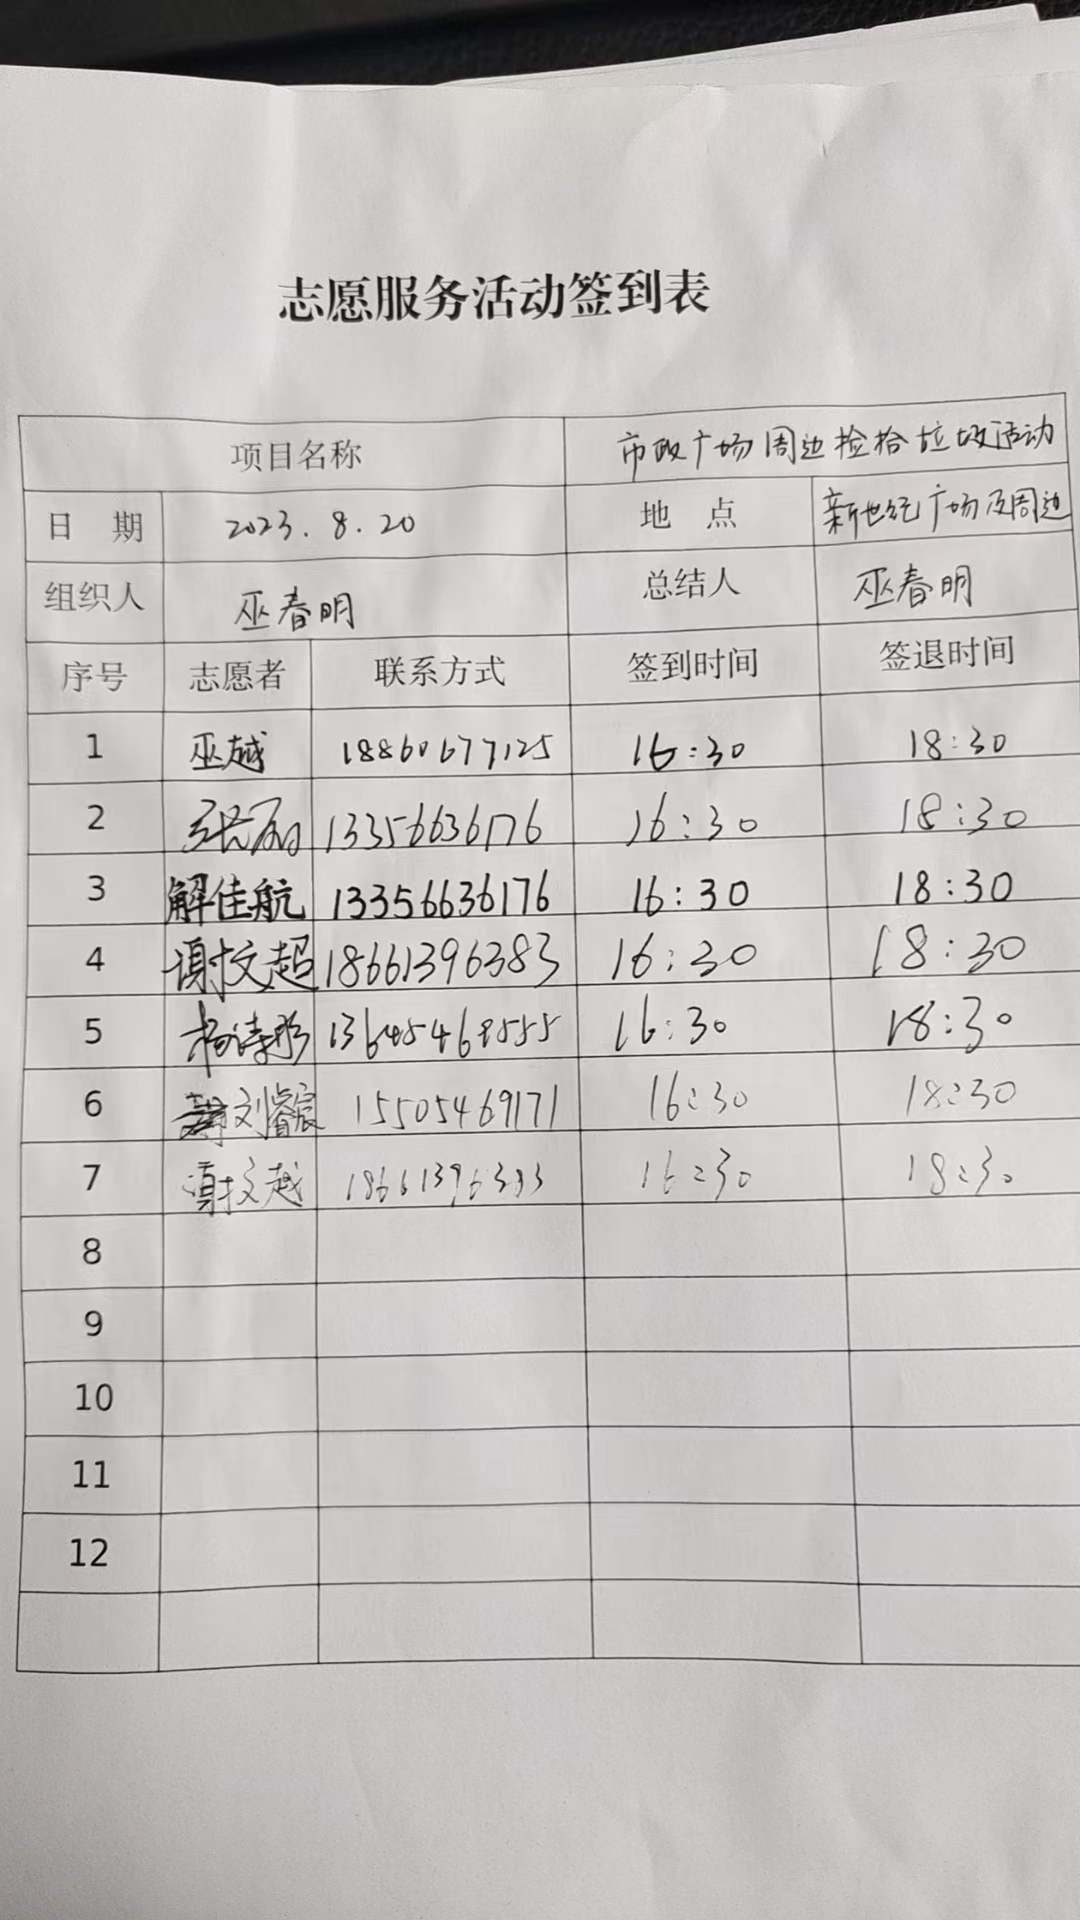 志愿服务活动签到表
项目名称 市政广场周边捡拾垃圾活动
日 期 2023.8.20 地 点 新世纪广场及周边
组织人 巫春明 总结人 巫春明
序号 志愿者 联系方式 签到时间 签退时间
1 巫越 18860677125 16:30 18:30
2 张 13356636176 16:30 18:30
3 解佳航 13356636176 16:30 18:30
4 谢文超 18661396383 16:30 18:30
5 杨诗彤 13645468555 16:30 18:30
6 刘睿宸 15505469171 16:30 18:30
7 谢文越 18661396383 16:30 18:30
8
9
10
11
12